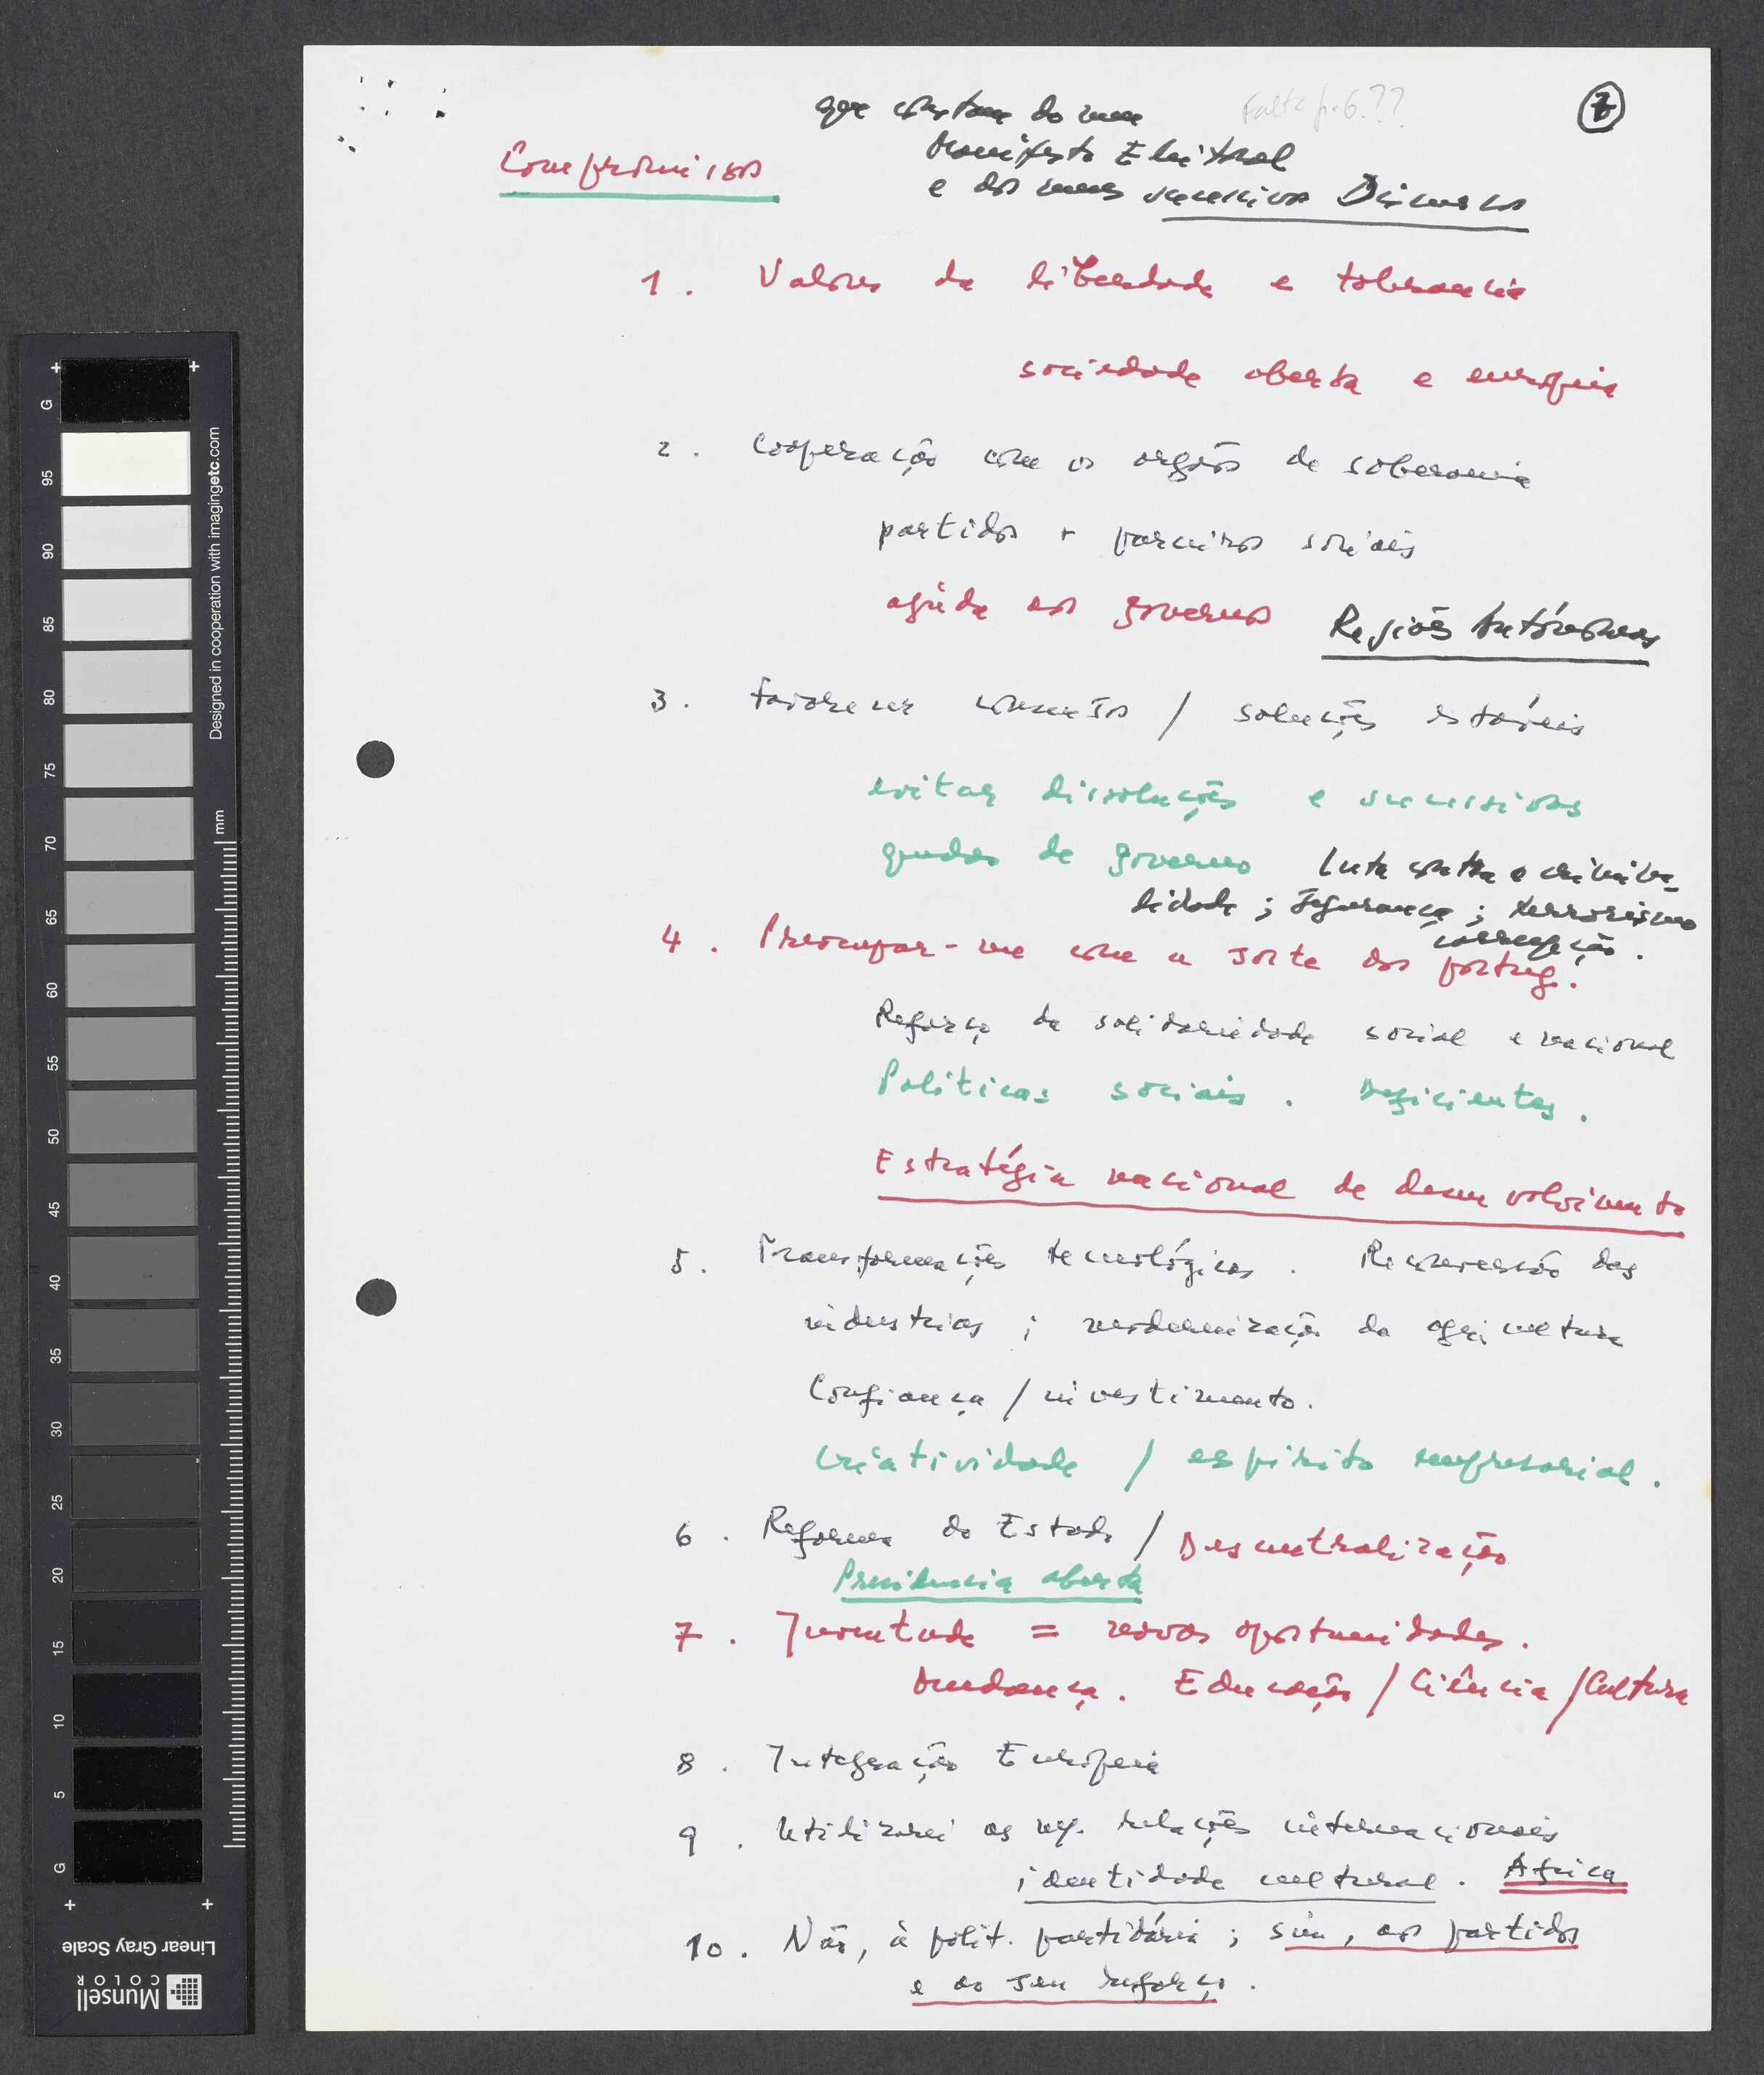 que constam do meu
Falta p. 6??
7
Manifesto Eleitoral
Compromissos
e dos meus sucessivos Discursos
1. Valores da liberdade e tolerancia
sociedade aberta e europeia
2. Cooperação com os orgãos de soberania
partidos + parceiros sociais
ajuda aos governos Regiões Autónomas
3. Favorecer consensos / soluções estáveis
evitar dissoluções e sucessivas
quedas de governo Luta contra a crimina-
lidade; segurança; terrorismo
corrupção.
4. Preocupar-me com a sorte dos portug.
Reforço da solidariedade social e nacional
Políticas sociais. Deficientes.
Estratégia nacional de desenvolvimento
5. Transformações tecnológicas. Reconversão das
industrias; modernização da agricultura
Confiança / investimento.
Criatividade / espirito empresarial.
6. Reforma do Estado / Descentralização
Presidencia aberta
7. Juventude = novas oportunidades.
Mudança. Educação / Ciência / Cultura
8. Integração Europeia
9. Utilizarei as relações internacionais
identidade cultural. Africa
10. Não, à polit. partidária; sim, aos partidos
e ao seu reforço.
G
95
90
85
80
75
70
65
60
55
50
45
40
35
30
25
20
15
10
5
G
mm
Designed in cooperation with imagingetc.com
Linear Gray Scale
Munsell
COLOR